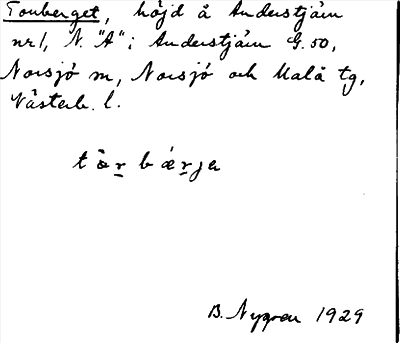 Torrberget, höjd å Anderstjärn
nr 1, N. "A" i Anderstjärn G. 50,
Norsjö sn, Norsjö och Malå tg,
Västerb. l.
bärja
B. Nygren 1929